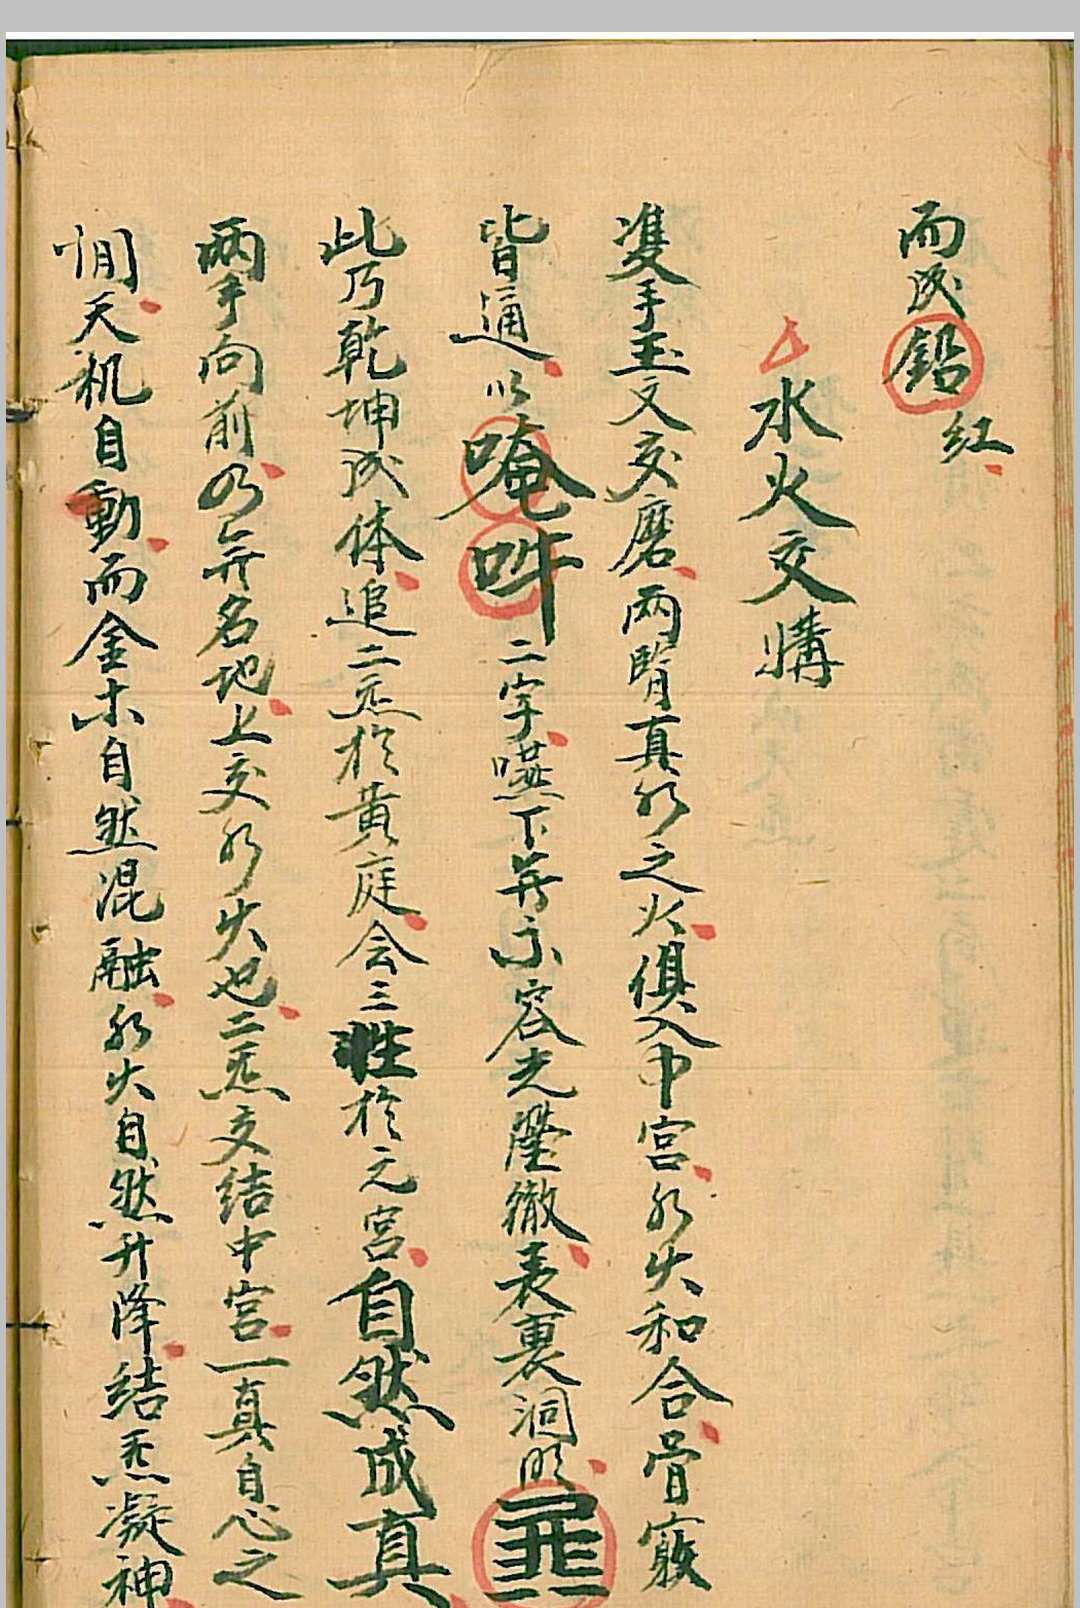 而成鉛紅
水火交媾
双手玉文交磨两腎真水之火俱入中宫水火和合骨竅
皆通以唵吽二字嚥下并示容光瑩徹表裏洞明
此乃乾坤成体追二炁於黄庭会三性於元宮自然成真
两手向前乃弃名地上交水火也二炁交结中宫一真自心之
間天机自動而金木自然混融水火自然升降结炁凝神